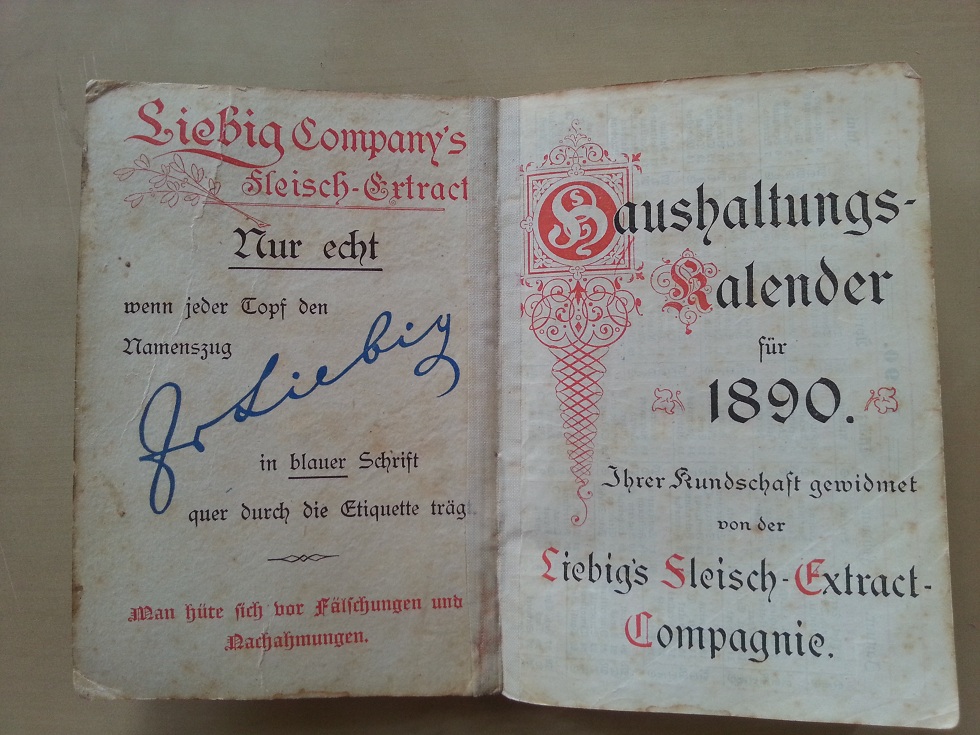 Liebig Company's
Fleisch-Extract
Nur echt
wenn jeder Topf den
Namenszug
Jv Liebig
in blauer Schrift
quer durch die Etiquette träg
Man hüte sich vor Fälschungen und
Nachahmungen.
Haushaltungs-
Kalender
für
1890.
Ihrer Kundschaft gewidmet
von der
Liebig's Fleisch-Extract-
Compagnie.